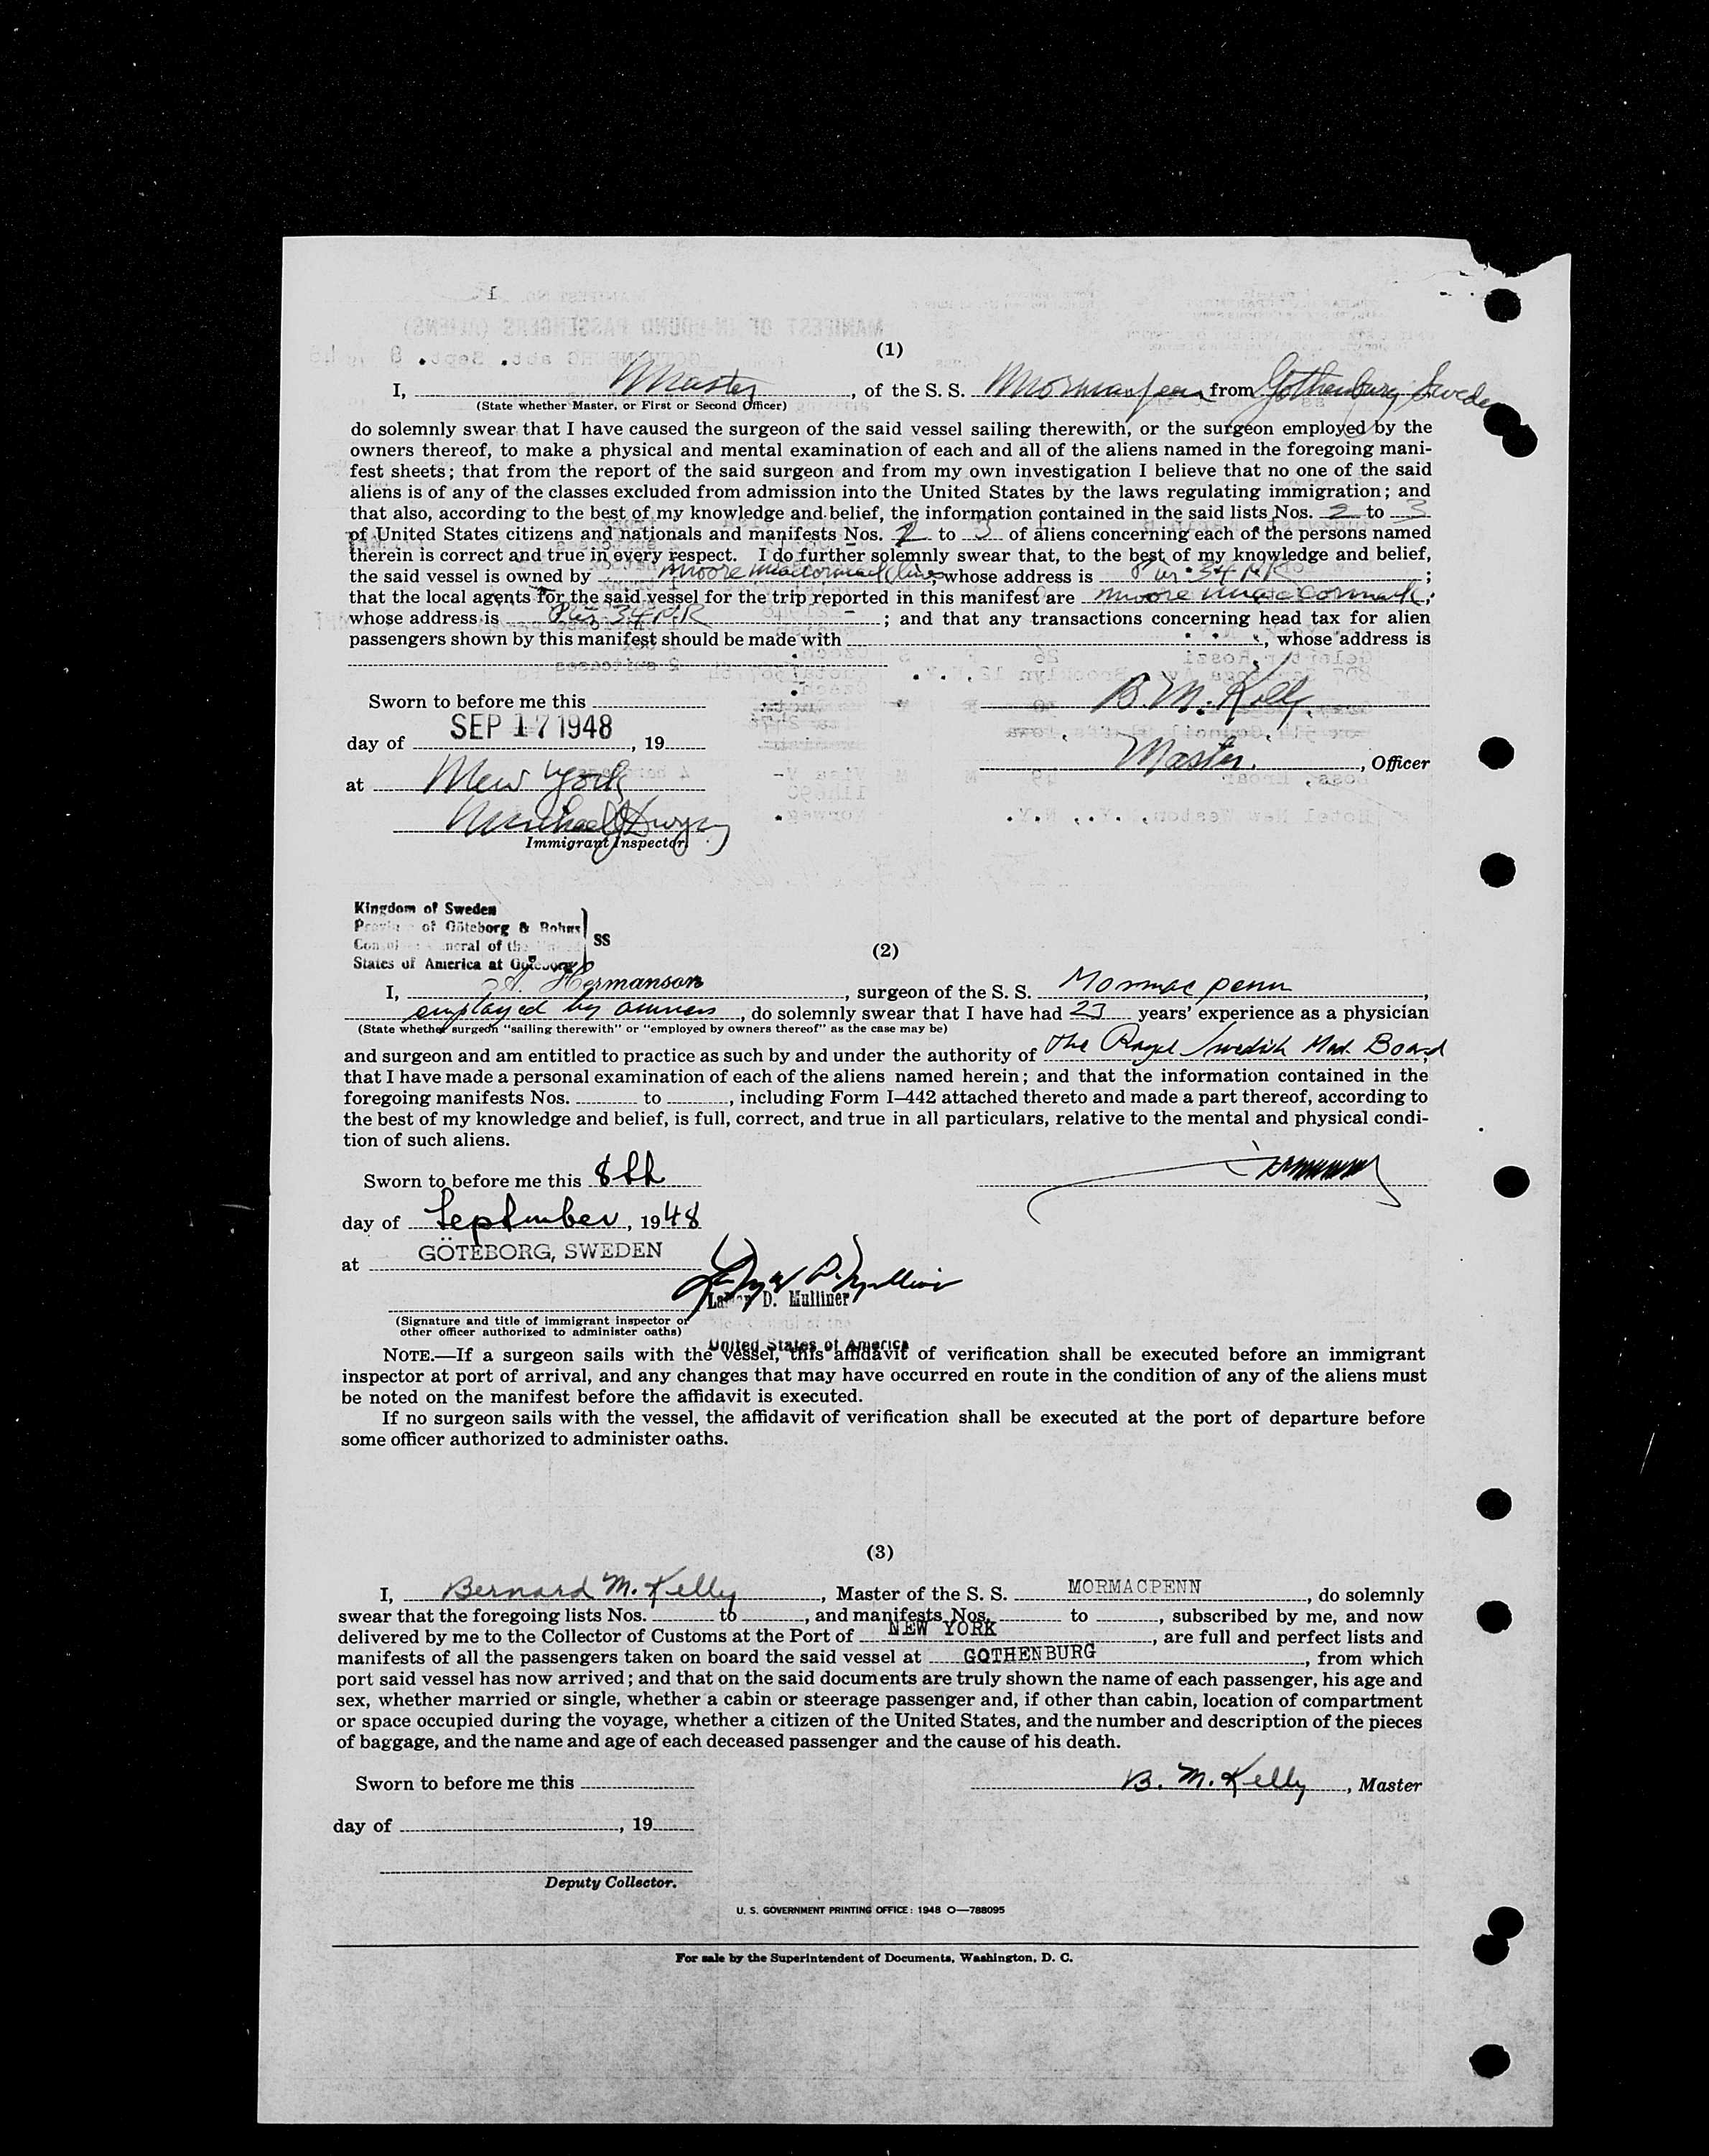 (1)
I, Master, of the S. S. Mormacpenn from Gothenburg Sweden
(State whether Master, or First or Second Officer)
do solemnly swear that I have caused the surgeon of the said vessel sailing therewith, or the surgeon employed by the
owners thereof, to make a physical and mental examination of each and all of the aliens named in the foregoing mani-
fest sheets; that from the report of the said surgeon and from my own investigation I believe that no one of the said
aliens is of any of the classes excluded from admission into the United States by the laws regulating immigration; and
that also, according to the best of my knowledge and belief, the information contained in the said lists Nos. 2 to 3
of United States citizens and nationals and manifests Nos. 2 to 3 of aliens concerning each of the persons named
therein is correct and true in every respect. I do further solemnly swear that, to the best of my knowledge and belief,
the said vessel is owned by Moore MacCormack Lines, whose address is Pier 34 NR;
that the local agents for the said vessel for the trip reported in this manifest are Moore MacCormack;
whose address is Pier 34 NR; and that any transactions concerning head tax for alien
passengers shown by this manifest should be made with, whose address is
Sworn to before me this
B. M. Kelly
SEP 17 1948
day of, 19
Master., Officer
at New York
Michael Dwyer
Immigrant Inspector.
Kingdom of Sweden
Province of Göteborg & Bohus
Consulate General of the United
SS
States of America at Goteborg
(2)
I, A. Hermanson, surgeon of the S. S. Mormacpenn,
employed by owners, do solemnly swear that I have had 23 years' experience as a physician
(State whether surgeon "sailing therewith" or "employed by owners thereof" as the case may be)
and surgeon and am entitled to practice as such by and under the authority of The Royal Swedish Med. Board,
that I have made a personal examination of each of the aliens named herein; and that the information contained in the
foregoing manifests Nos. to, including Form I–442 attached thereto and made a part thereof, according to
the best of my knowledge and belief, is full, correct, and true in all particulars, relative to the mental and physical condi-
tion of such aliens.
Sworn to before me this 8th
day of September, 1948
at GÖTEBORG, SWEDEN
D. Mulliner
(Signature and title of immigrant inspector or
other officer authorized to administer oaths)
United States of America
NOTE.—If a surgeon sails with the vessel, this affidavit of verification shall be executed before an immigrant
inspector at port of arrival, and any changes that may have occurred en route in the condition of any of the aliens must
be noted on the manifest before the affidavit is executed.
If no surgeon sails with the vessel, the affidavit of verification shall be executed at the port of departure before
some officer authorized to administer oaths.
(3)
I, Bernard M. Kelly, Master of the S. S. MORMACPENN, do solemnly
swear that the foregoing lists Nos. to, and manifests Nos. to, subscribed by me, and now
delivered by me to the Collector of Customs at the Port of NEW YORK, are full and perfect lists and
manifests of all the passengers taken on board the said vessel at GOTHENBURG, from which
port said vessel has now arrived; and that on the said documents are truly shown the name of each passenger, his age and
sex, whether married or single, whether a cabin or steerage passenger and, if other than cabin, location of compartment
or space occupied during the voyage, whether a citizen of the United States, and the number and description of the pieces
of baggage, and the name and age of each deceased passenger and the cause of his death.
Sworn to before me this
B. M. Kelly, Master
day of, 19
Deputy Collector.
U. S. GOVERNMENT PRINTING OFFICE: 1948 O—788095
For sale by the Superintendent of Documents, Washington, D. C.